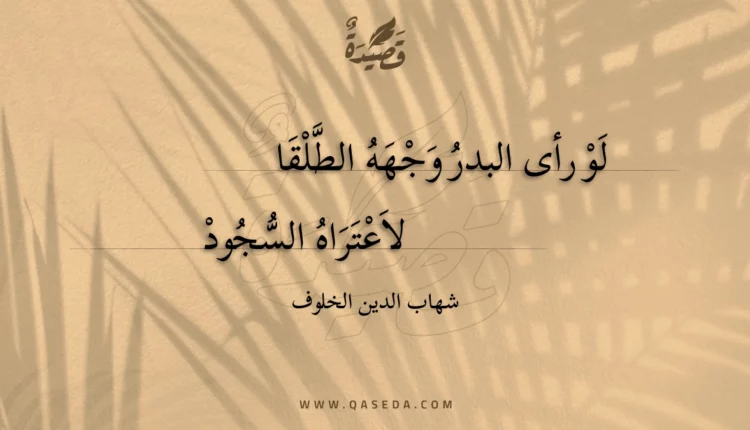 قَصِيْدَةٌ
لَوْ رأى البدرُ وَجْهَهُ الطَّلْقَا
لاَعْتَرَاهُ السُّجُودْ
شهاب الدين الخلوف
WWW.QASEDA.COM